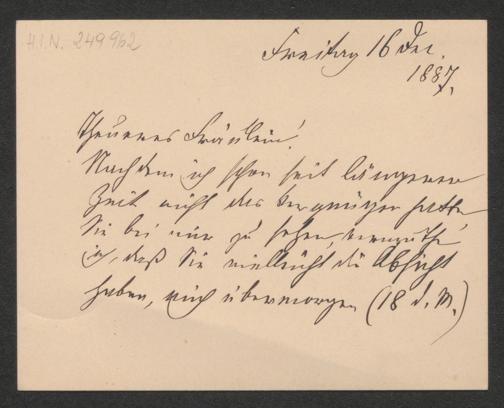 H.I.N. 249962
Freitag 16 Dec.
1887.
Theueres Fräulein!
Nachdem ich schon seit längerer
Zeit nicht das Vergnügen hatte,
Sie bei mir zu sehen, vermuthe
ich, daß Sie vielleicht die Absicht
haben, mich übermorgen (18 d. M.)